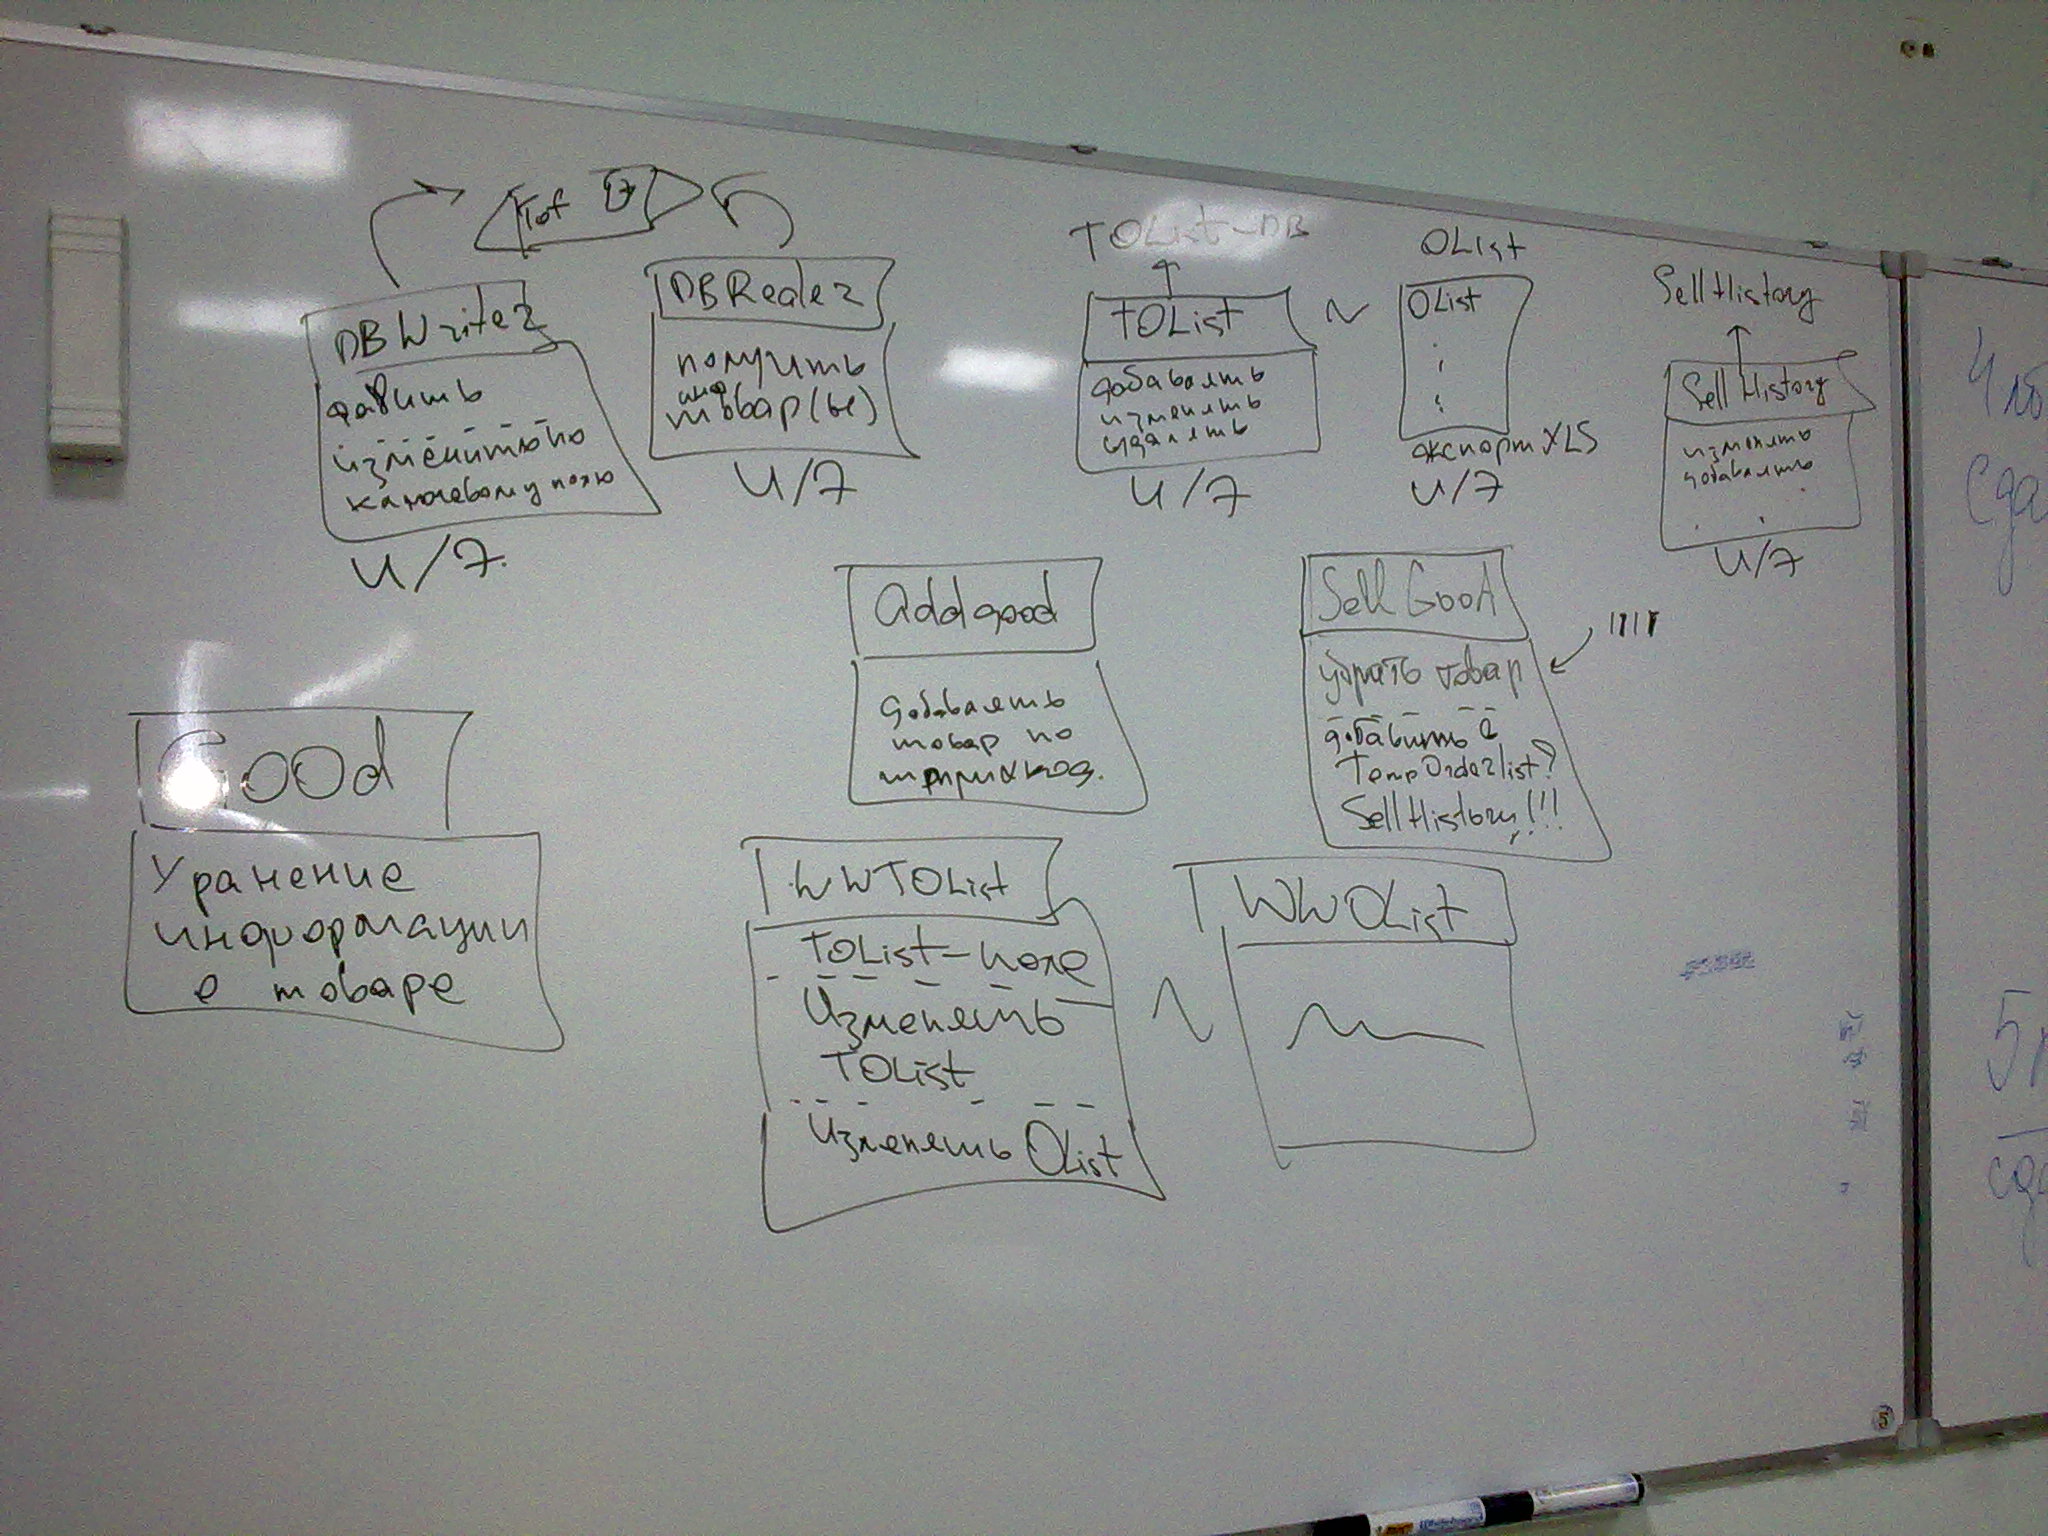 DBWriter
изменить по
ключевому полю
И/7.
DBReader
получить
инф
товар(ы)
И/7
TOList-DB
TOList
добавлять
изменять
удалять
И/7
~
OList
OList
экспорт XLS
И/7
SellHistory
SellHistory
изменять
добавлять
И/7
addgood
добавлять
товар по
SellGood
убрать товар
добавить в
TempOrderlist?
SellHistory!!!
Good
Уранение
информации
о товаре
WWTOList
TOList-поле
Изменять
TOList
Изменять OList
WWOList
5